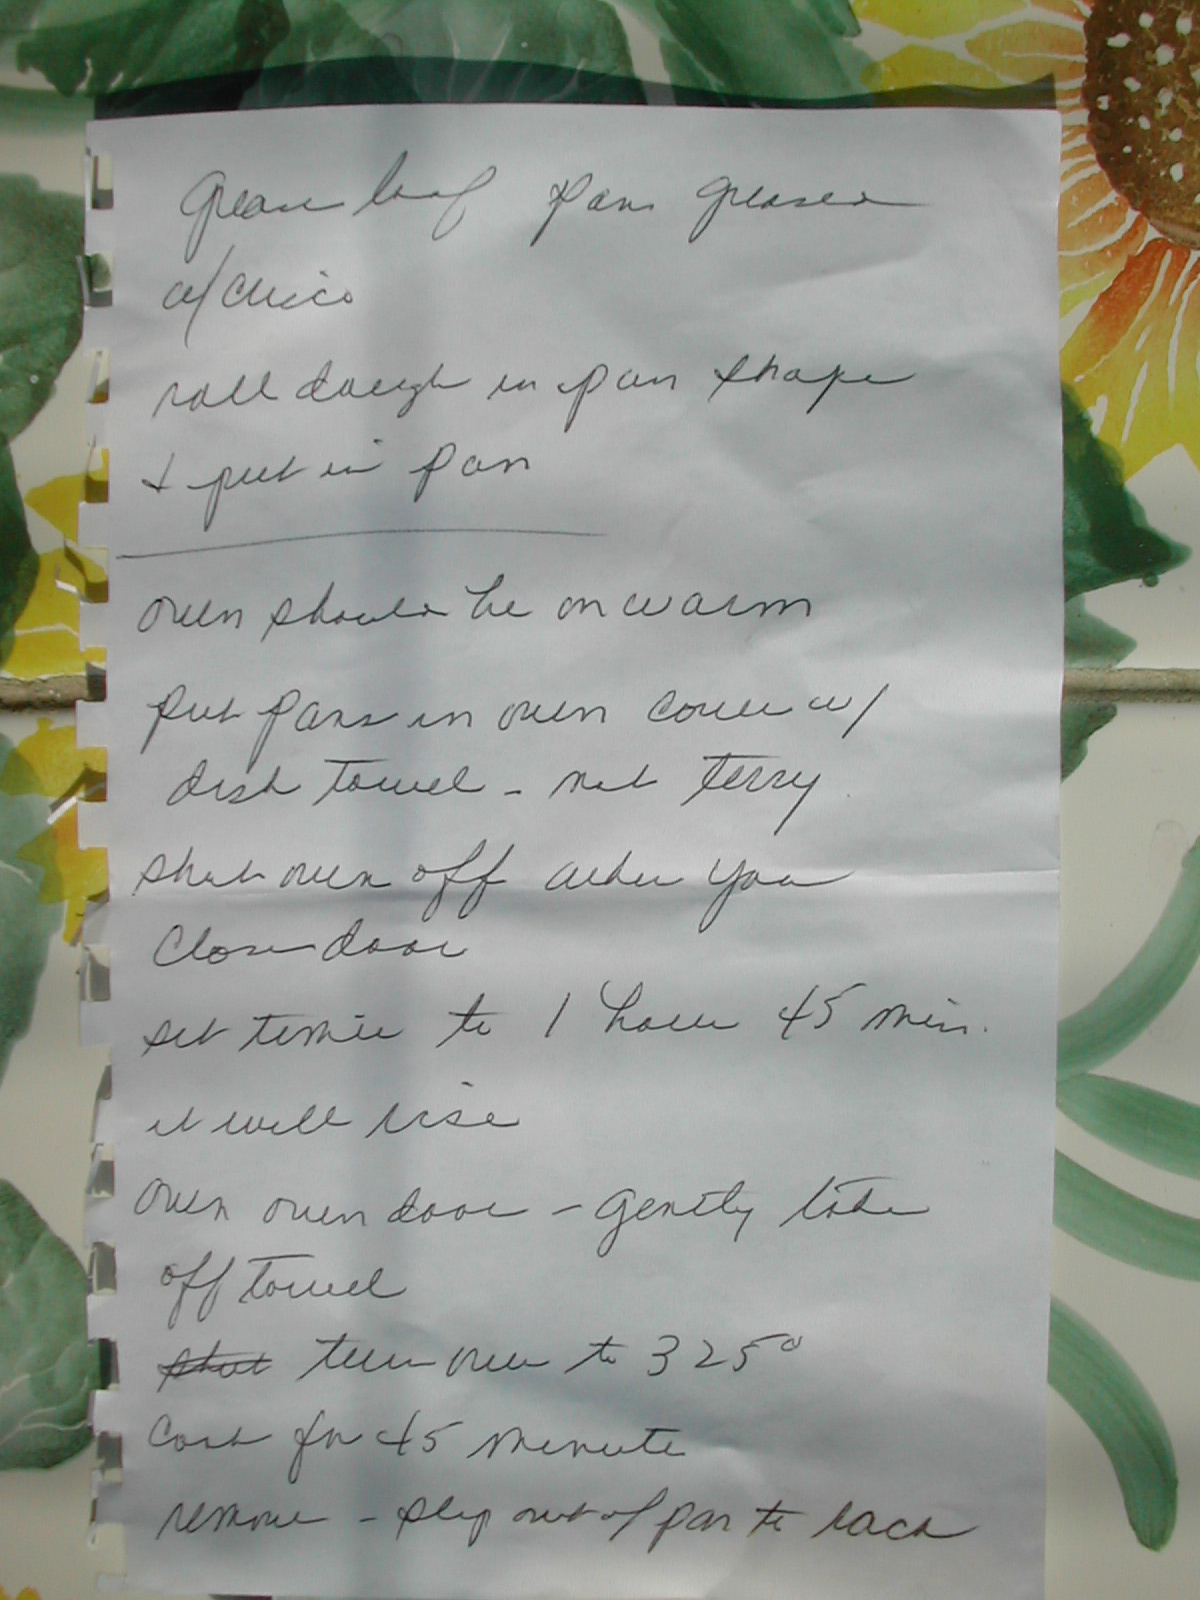 Grease loaf pans greased
w/ Crisco
roll dough in pan shape
+ put in pan
oven should be on warm
put pans in oven cover w/
dish towel - not terry
shut oven off after you
close door
set timer to 1 hour 45 min.
it will rise
open oven door - gently take
off towel
shut turn oven to 325°
Cook for 45 minute
remove - slip out of pan to rack